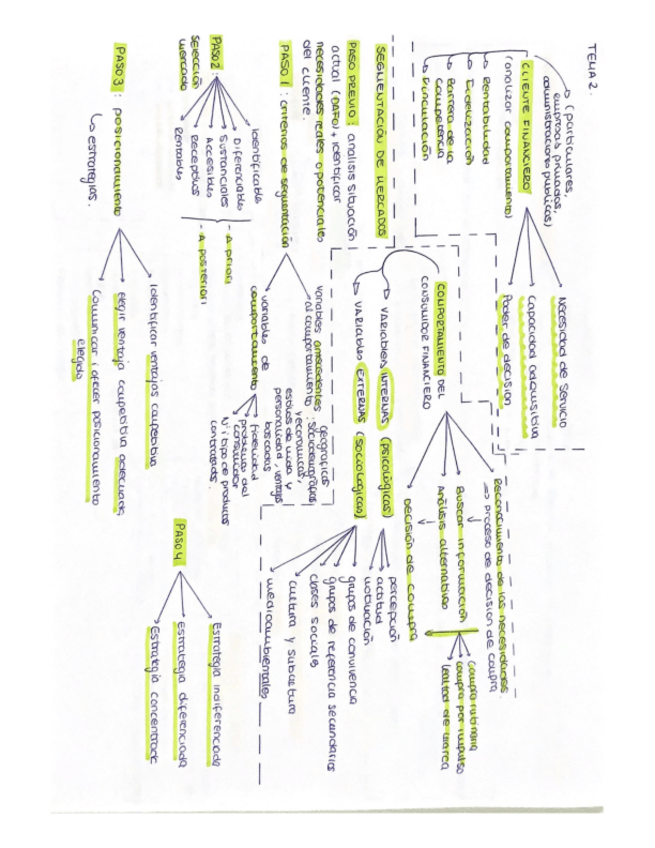 TEMA 2.
(particulares,
empresas privadas
administraciones públicas)
CLIENTE FINANCIERO
(analizar comportamiento)
Rentabilidad
Fidelización
Barrera de la
competencia
Vinculación
Necesidad de servicio
Capacidad adquisitiva
Poder de decisión
COMPORTAMIENTO DEL
CONSUMIDOR FINANCIERO
Reconocimiento de las necesidades.
⇒ proceso de decisión de compra
Buscar información
Análisis alternativas
Decisión de compra
compra rutinaria
compra por impulso
lealtad de marca
VARIABLES INTERNAS (PSICOLÓGICAS)
percepción
actitud
motivación
VARIABLES EXTERNAS (SOCIOLÓGICAS)
grupos de convivencia
grupos de referencia secundarios
clases sociales
cultura y subcultura
medioambientales
SEGMENTACIÓN DE MERCADOS
PASO PREVIO: análisis situación
actual (DAFO) + identificar
necesidades reales o potenciales
del cliente.
PASO 1: criterios de segmentación
variables antecedentes
al comportamiento:
geográficas
sociodemográficas
y económicas,
estilos de vida y
personalidad, ventajas
buscadas
variables de
comportamiento
Fidelidad
problemas del
consumidor
Nº i tipo de productos
contratados.
PASO 2:
Selección
mercado
Identificable
Diferenciables
Sustanciales
Accesibles
Receptivos
Rentables
- A priori
- A posteriori
PASO 3: posicionamiento
↳ estrategias.
Identificar ventajas competitiva
elegir ventaja competitiva adecuada
Comunicar i ofrecer posicionamiento
elegido
PASO 4
Estrategia indiferenciada
estrategia diferenciada
Estrategia concentrada